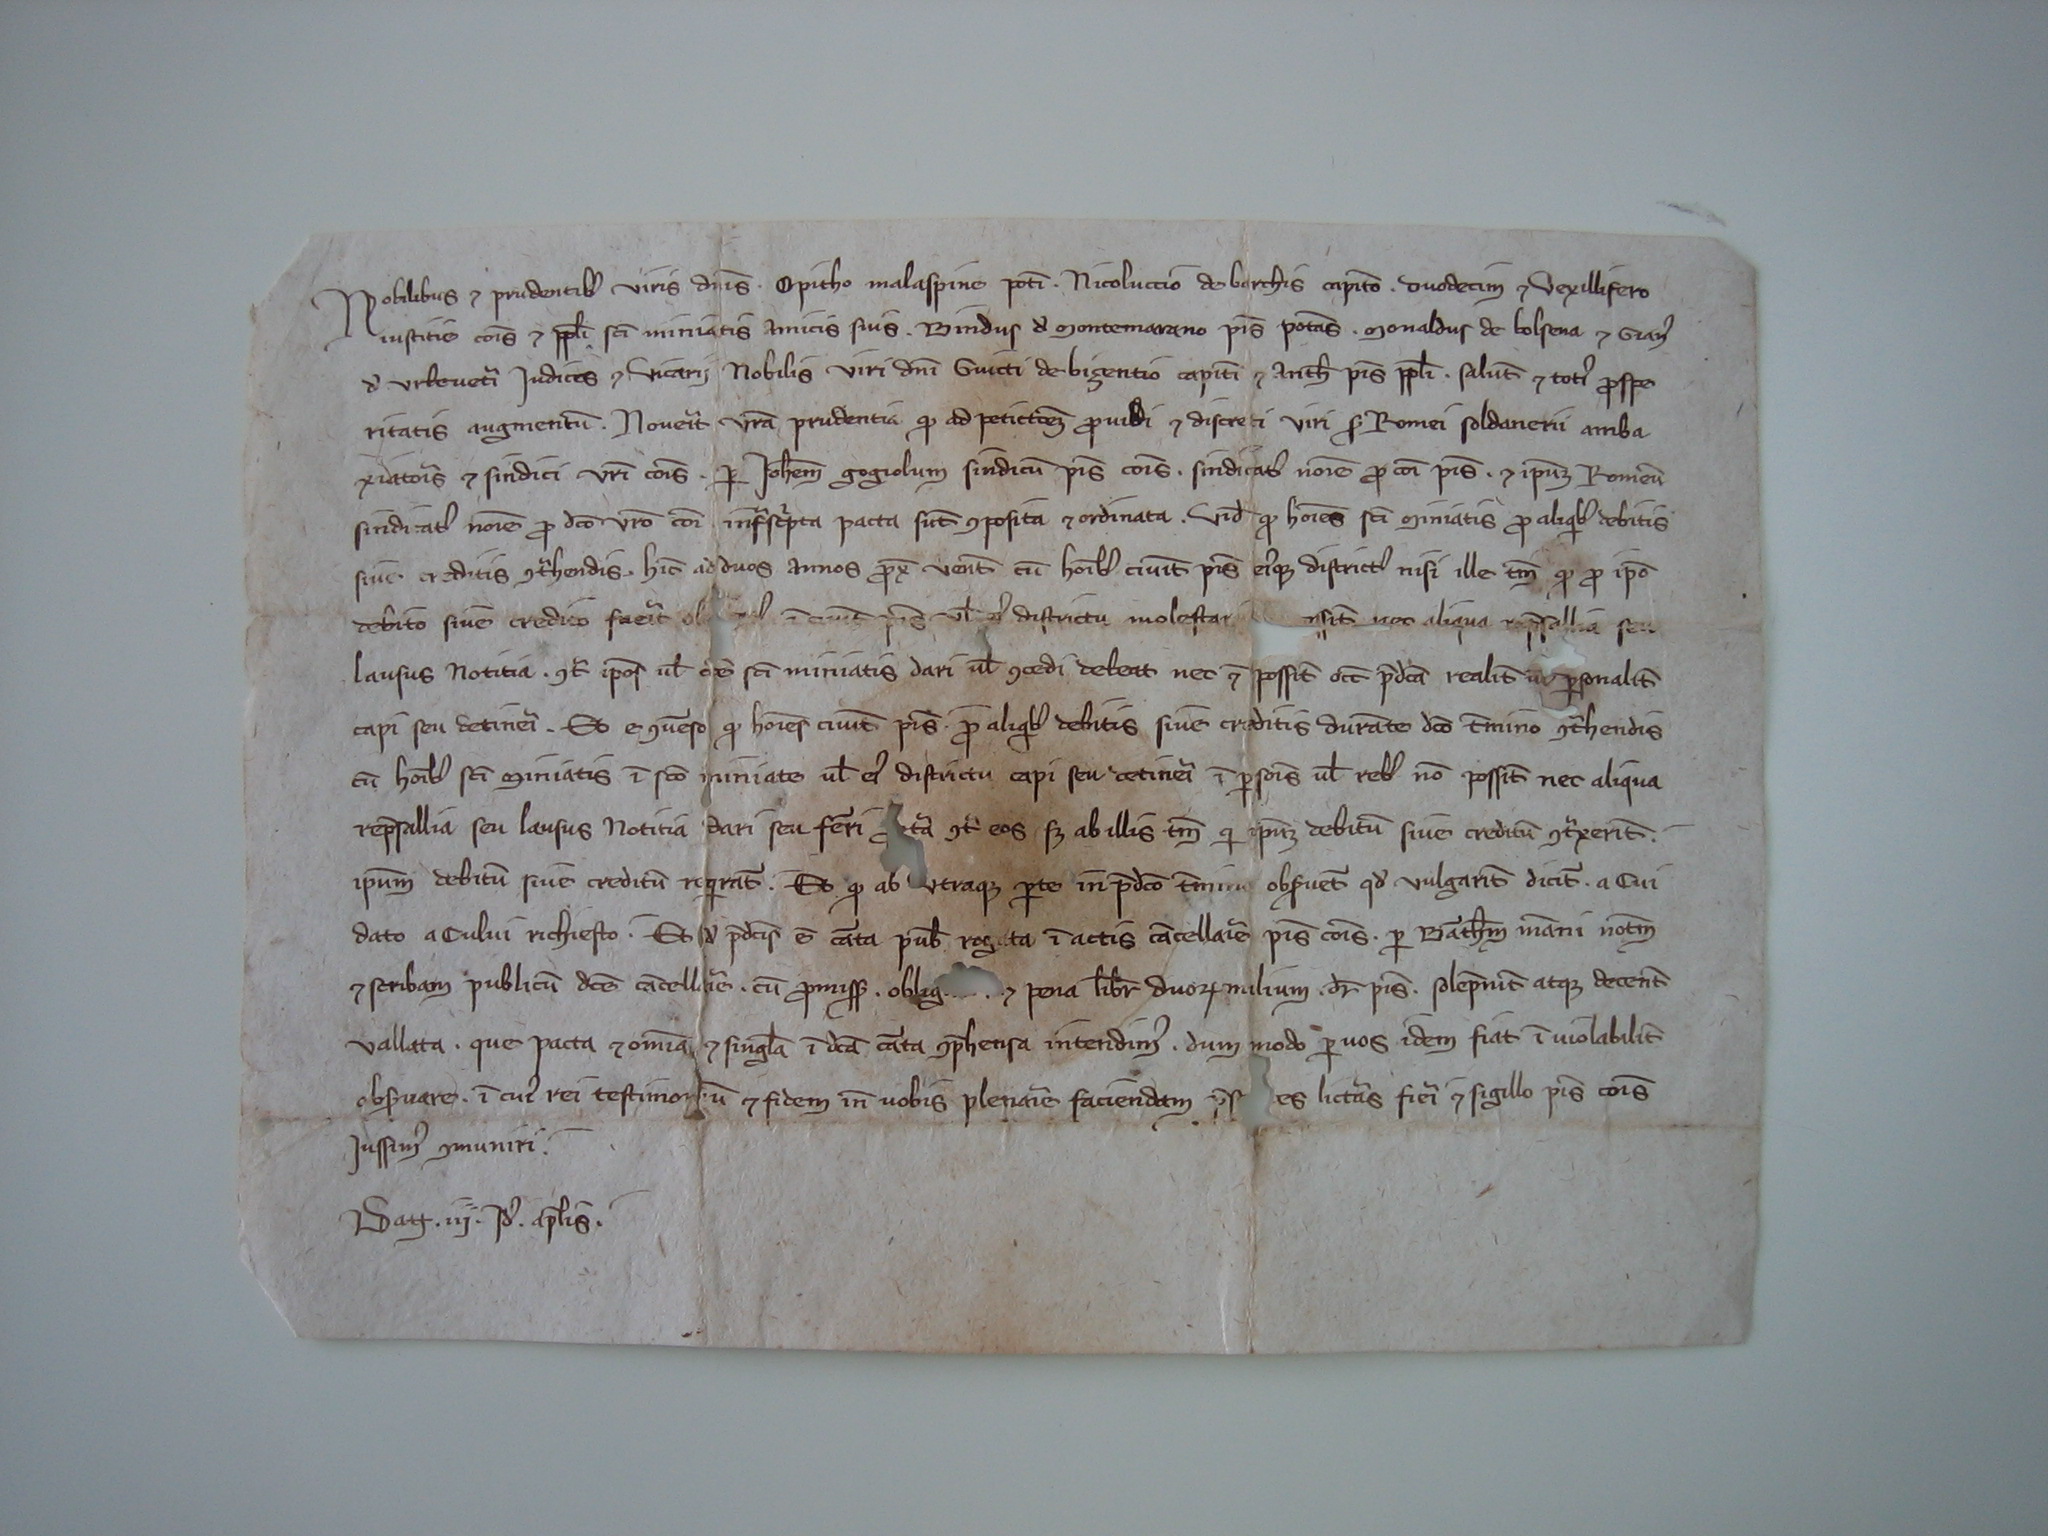 Nobilibus ⁊ prudentib; viris dnis. Opitho malaspine poti. Nicoluccio de barchis capito. duodecim ⁊ Vexillifero
iustitie cois ⁊ ppli sci miniatis amicis suis. Bindus d montemarano pis potas. monaldus de bolsena ⁊
d urbeueti Judices ⁊ Vicarij Nobilis viri dni Guicti de bigentio capiti ⁊ pis ppli. salut ⁊ prospe
ritatis augmentu. Nouerit vra prudentia q ad peticcoem prouidi ⁊ discreti viri s Romei soldanerii amba
xiatoris ⁊ sindici vri cois. p Johem gogiolum sindicu pis cois. sindicat noie pro coi pis. ⁊ ipm Romeu
sindicat noie pro dco vro coi infrscpta pacta sut 9posita ⁊ ordinata. vid q hoies sci Miniatis pro aliqb debitis
siue creditis 9trhendis hic ad duos annos prox vent cu hoib ciuit pis eiq district nisi ille tm q pro ipo
debito siue credito fuerit i ciuit pis ul districtu molestar nec aliqua repsallia seu
lausus Notitia. 9tr ipos ul sci miniatis dari ul 9cedi debeat nec possit occ pdca realit personalit
capi seu detineri. Et e 9uerso q hoies ciuit pis. pro aliqb debitis siue creditis durate dco tmino 9trhendis
cu hoib sci Miniatis i sco miniate ul ei districtu capi seu detineri i psois ul reb no possit nec aliqua
repsallia seu lausus Notitia dari seu feri 9tr eos s; ab illis tm q ipm debitu siue creditu 9trxerit.
ipsum debitu siue creditu reqrat. Et q ab utraq; pte in pdco tmino obseruet qd vulgarit dicit. a Cui
dato a Colui richiesto. Et d pdcis e cata pub rogata i actis cacellarie pis cois. p mani notm
⁊ scribam publicu dce cacellarie. cu promiss. oblig ⁊ pena libr duor milium dr pis. solepnit atq; decent
vallata. que pacta ⁊ omia ⁊ singla i dca cata 9phensa intendim. dum modo p uos idem fiat i uiolabilit
obseruare. i cui rei testimoniu ⁊ fidem in uobis plenarie faciendam es licteras fieri ⁊ sigillo pis cois
Jussim 9muniri.
Dat. iij. Id. aplis.